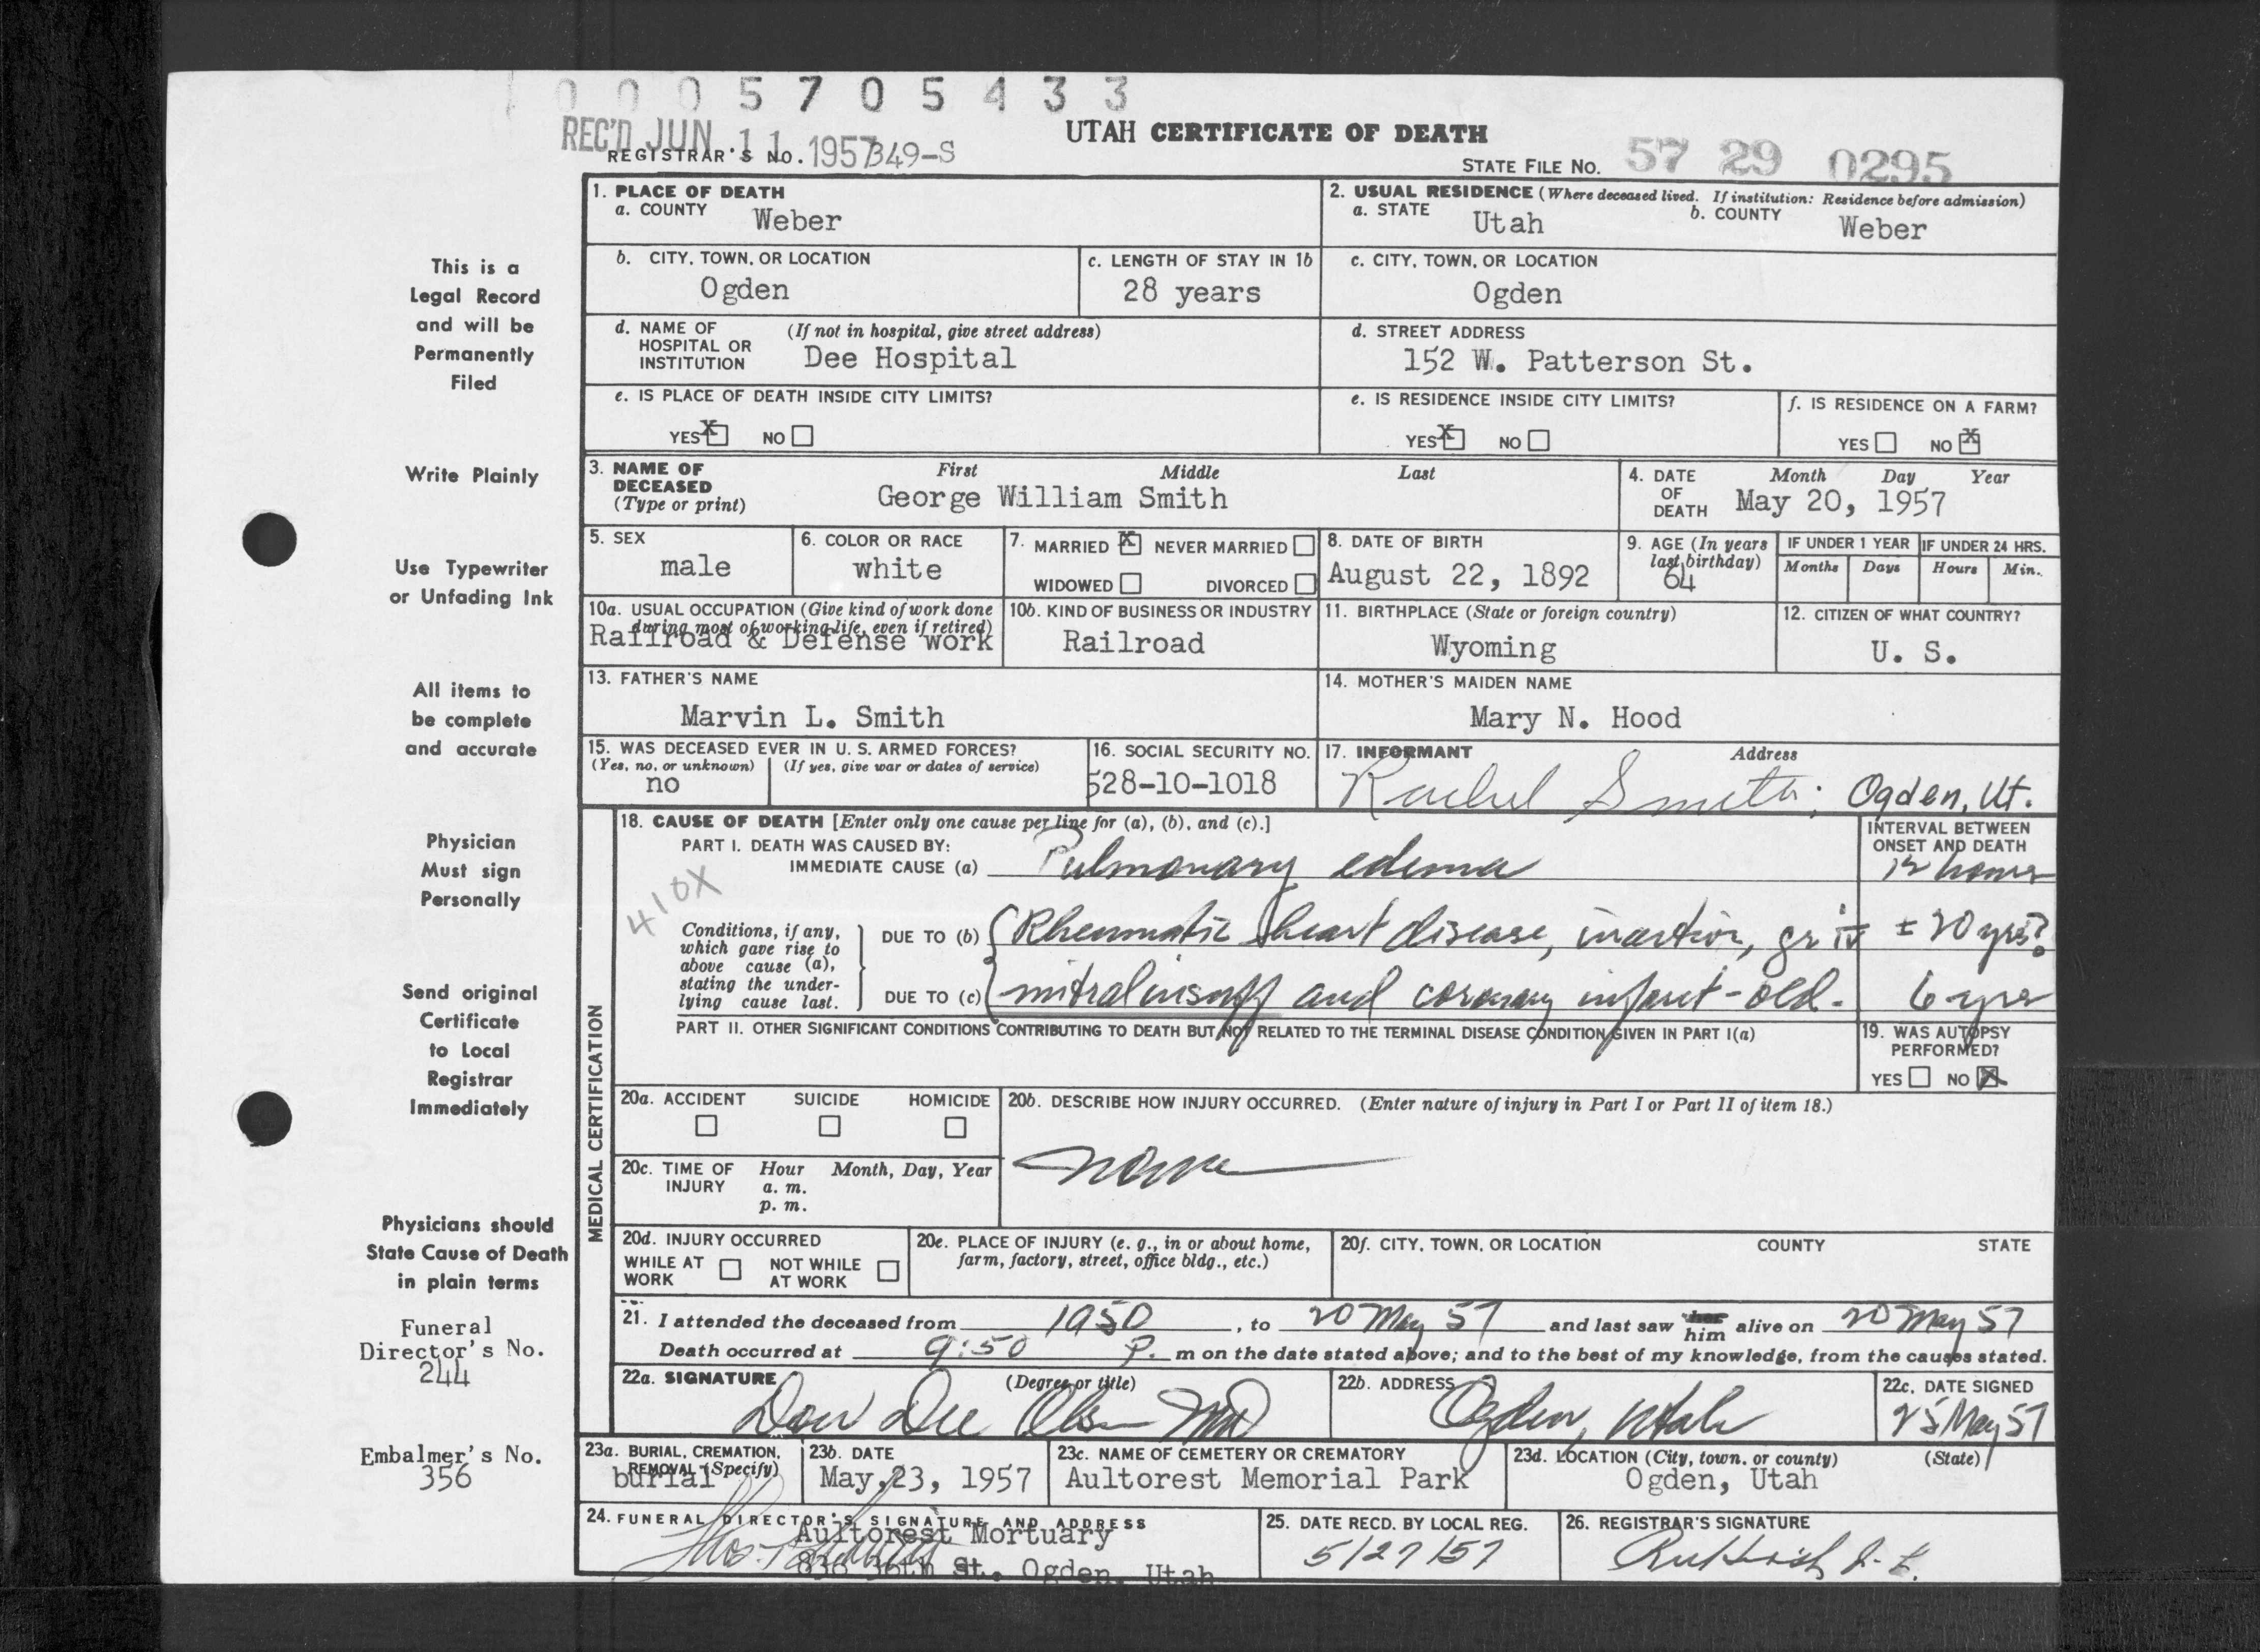 0005705433
REC'D JUN 11 1957
REGISTRAR'S NO. 349-S
UTAH CERTIFICATE OF DEATH
STATE FILE NO. 57 29 0295
This is a
Legal Record
and will be
Permanently
Filed
Write Plainly
Use Typewriter
or Unfading Ink
All items to
be complete
and accurate
Physician
Must sign
Personally
Send original
Certificate
to Local
Registrar
Immediately
Physicians should
State Cause of Death
in plain terms
Funeral
Director's No.
244
Embalmer's No.
356
1. PLACE OF DEATH
a. COUNTY
Weber
2. USUAL RESIDENCE (Where deceased lived. If institution: Residence before admission)
a. STATE Utah b. COUNTY Weber
b. CITY, TOWN, OR LOCATION
Ogden
c. LENGTH OF STAY IN 1b
28 years
c. CITY, TOWN, OR LOCATION
Ogden
d. NAME OF HOSPITAL OR INSTITUTION (If not in hospital, give street address)
Dee Hospital
d. STREET ADDRESS
152 W. Patterson St.
e. IS PLACE OF DEATH INSIDE CITY LIMITS?
YES X NO
e. IS RESIDENCE INSIDE CITY LIMITS?
YES X NO
f. IS RESIDENCE ON A FARM?
YES NO X
3. NAME OF DECEASED (Type or print) First Middle Last
George William Smith
4. DATE OF DEATH Month Day Year
May 20, 1957
5. SEX
male
6. COLOR OR RACE
white
7. MARRIED X NEVER MARRIED
WIDOWED DIVORCED
8. DATE OF BIRTH
August 22, 1892
9. AGE (In years last birthday)
64
IF UNDER 1 YEAR IF UNDER 24 HRS.
Months Days Hours Min.
10a. USUAL OCCUPATION (Give kind of work done during most of working life, even if retired)
Railroad & Defense work
10b. KIND OF BUSINESS OR INDUSTRY
Railroad
11. BIRTHPLACE (State or foreign country)
Wyoming
12. CITIZEN OF WHAT COUNTRY?
U. S.
13. FATHER'S NAME
Marvin L. Smith
14. MOTHER'S MAIDEN NAME
Mary N. Hood
15. WAS DECEASED EVER IN U. S. ARMED FORCES?
(Yes, no, or unknown) (If yes, give war or dates of service)
no
16. SOCIAL SECURITY NO.
528-10-1018
17. INFORMANT Address
Rachel Smith; Ogden, Ut.
MEDICAL CERTIFICATION
18. CAUSE OF DEATH [Enter only one cause per line for (a), (b), and (c).]
PART I. DEATH WAS CAUSED BY:
IMMEDIATE CAUSE (a) Pulmonary edema
INTERVAL BETWEEN ONSET AND DEATH
12 hours
410X
Conditions, if any, which gave rise to above cause (a), stating the underlying cause last.
DUE TO (b) Rheumatic heart disease, inactive, gr IV ± 20 yrs?
DUE TO (c) mitral insuff and coronary infarct - old. 6 yrs
PART II. OTHER SIGNIFICANT CONDITIONS CONTRIBUTING TO DEATH BUT NOT RELATED TO THE TERMINAL DISEASE CONDITION GIVEN IN PART I(a)
19. WAS AUTOPSY PERFORMED?
YES NO X
20a. ACCIDENT SUICIDE HOMICIDE
20b. DESCRIBE HOW INJURY OCCURRED. (Enter nature of injury in Part I or Part II of item 18.)
none
20c. TIME OF INJURY Hour Month, Day, Year
a. m.
p. m.
20d. INJURY OCCURRED
WHILE AT WORK NOT WHILE AT WORK
20e. PLACE OF INJURY (e. g., in or about home, farm, factory, street, office bldg., etc.)
20f. CITY, TOWN, OR LOCATION COUNTY STATE
21. I attended the deceased from 1950, to 20 May 57 and last saw her him alive on 20 May 57
Death occurred at 9:50 P. m on the date stated above; and to the best of my knowledge, from the causes stated.
22a. SIGNATURE (Degree or title)
Dow Dee Olsen MD
22b. ADDRESS
Ogden, Utah
22c. DATE SIGNED
25 May 57
23a. BURIAL, CREMATION, REMOVAL (Specify)
burial
23b. DATE
May 23, 1957
23c. NAME OF CEMETERY OR CREMATORY
Aultorest Memorial Park
23d. LOCATION (City, town, or county) (State)
Ogden, Utah
24. FUNERAL DIRECTOR'S SIGNATURE AND ADDRESS
Aultorest Mortuary
836 36th St. Ogden, Utah
25. DATE RECD. BY LOCAL REG.
5/27/57
26. REGISTRAR'S SIGNATURE